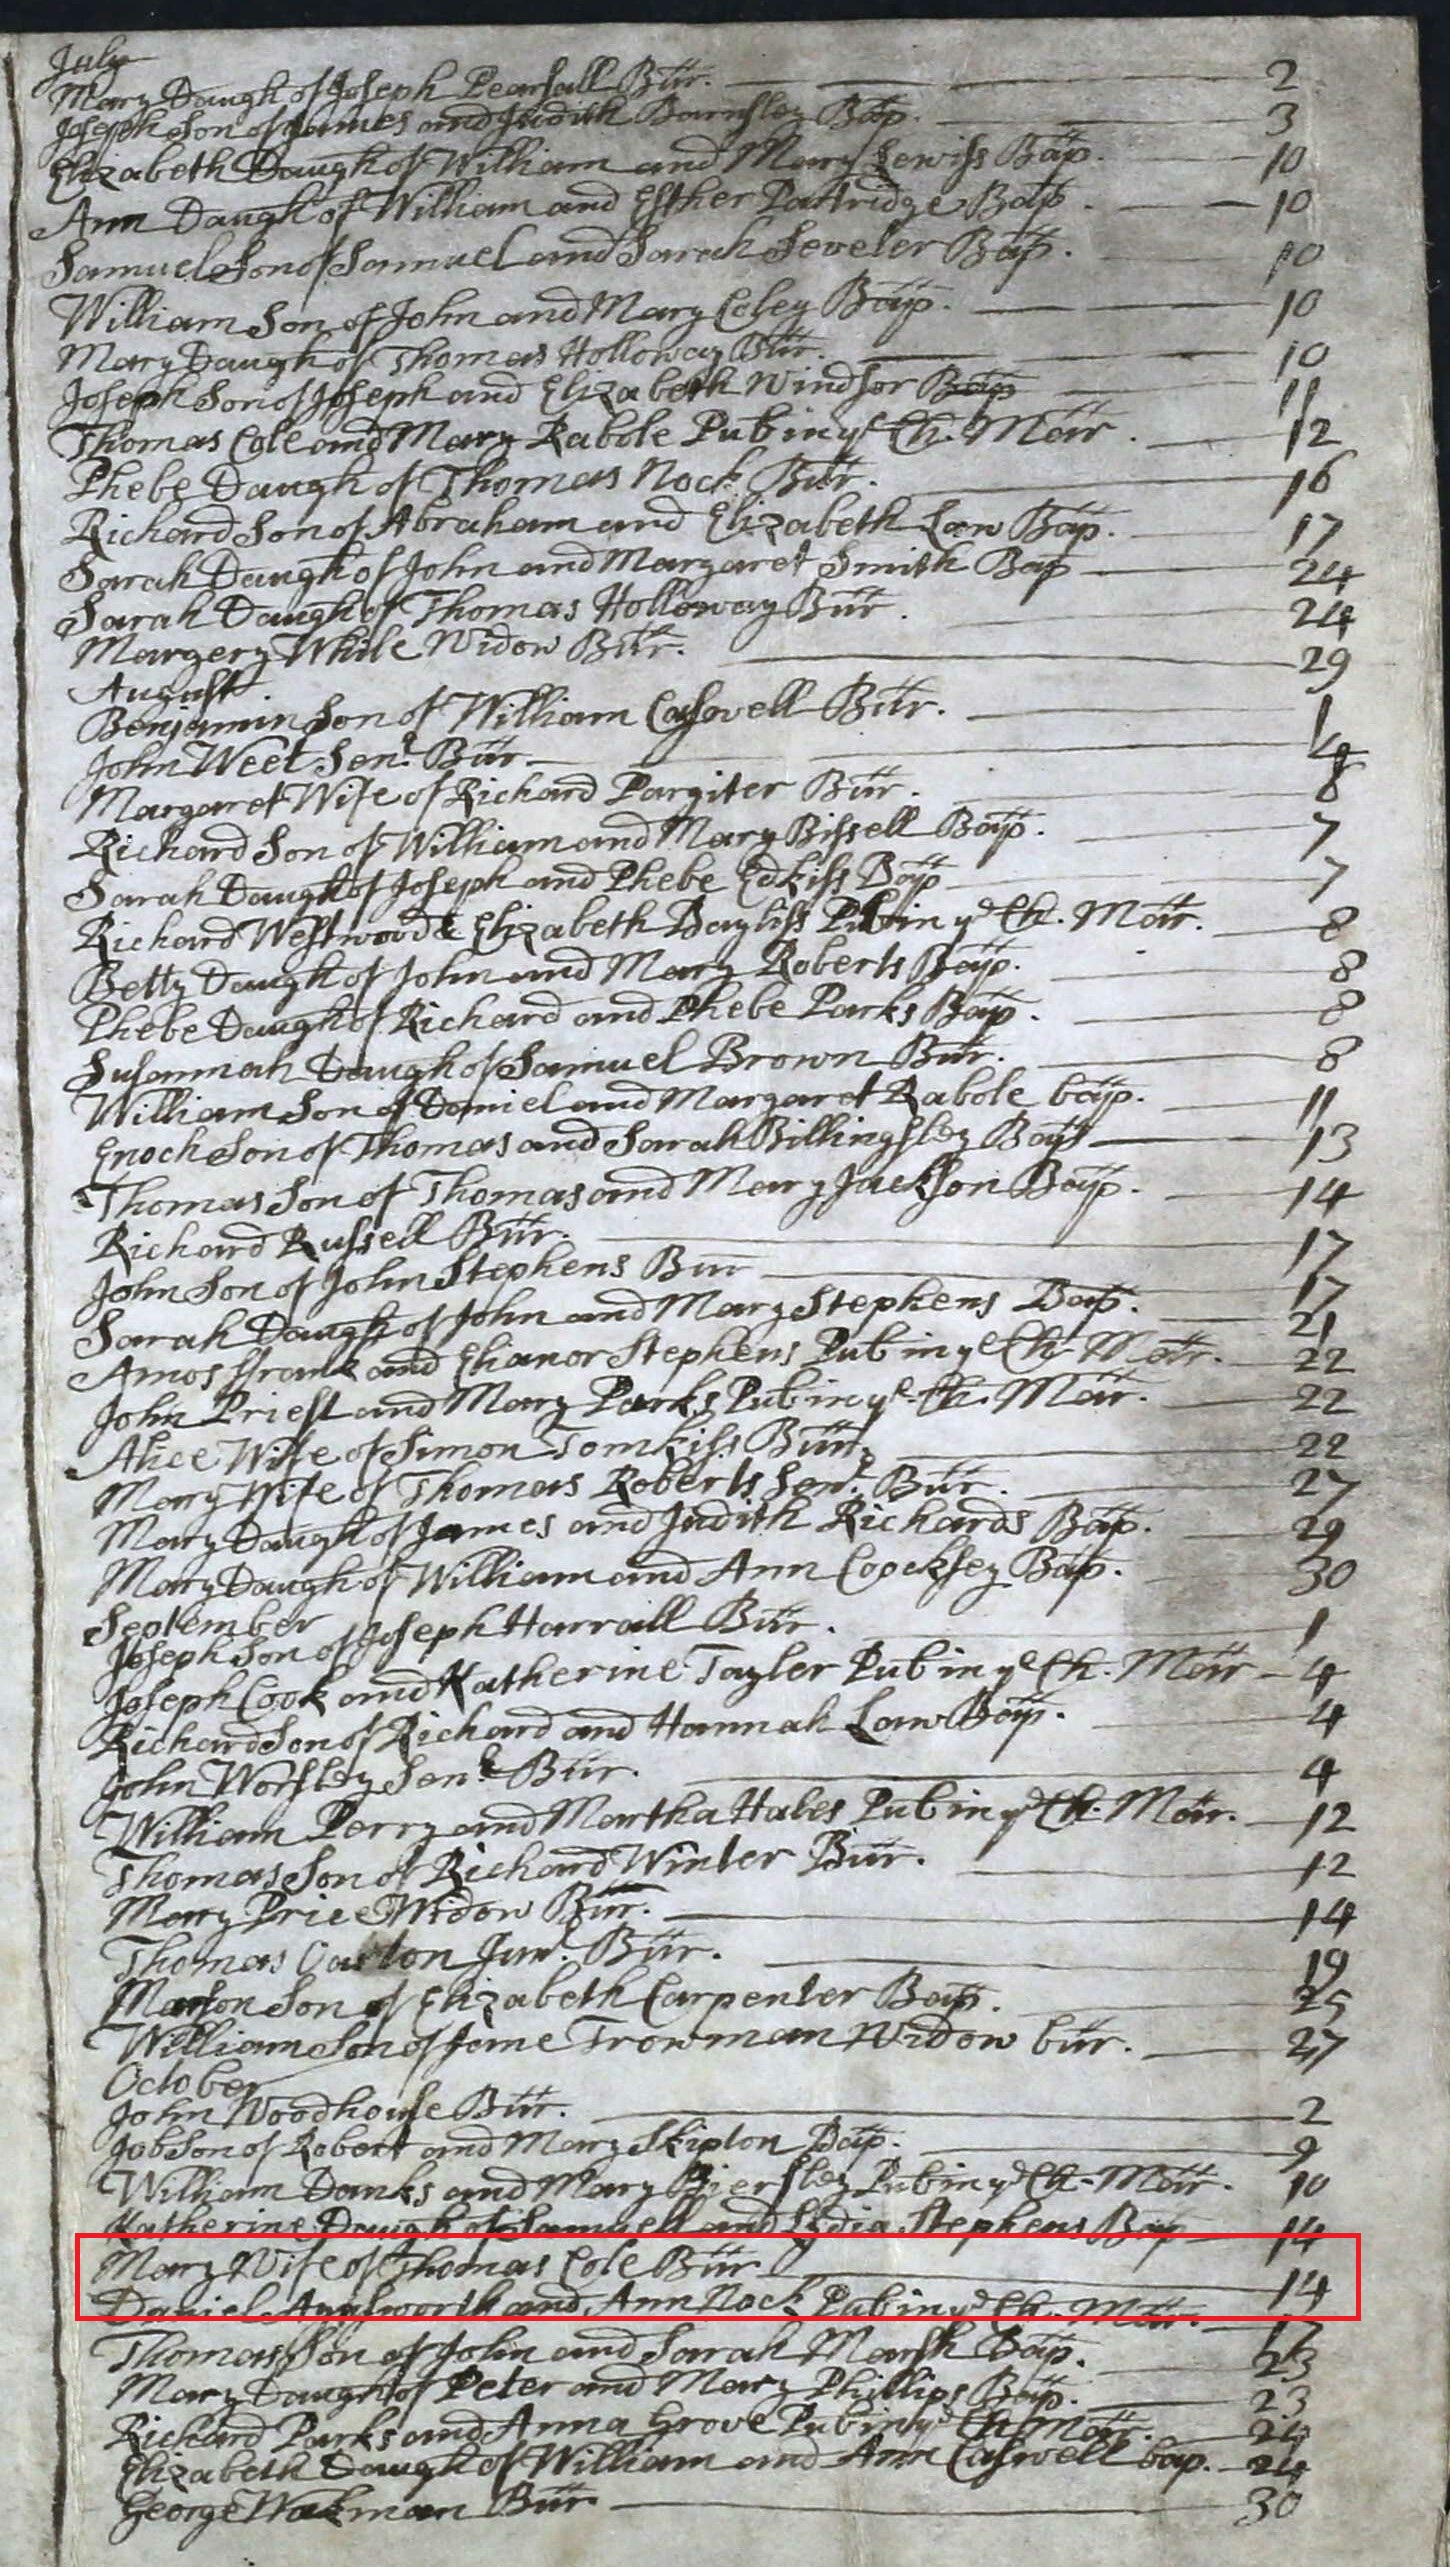 July
Mary Daugh of Joseph Pearsall Bur. 2
Joseph Son of James and Judith Barnsley Bap. 3
Elizabeth Daugh of William and Mary Lewiss Bap. 10
Ann Daugh of William and Esther Pattridge Bap. 10
Samuel Son of Samuel and Sarah Seveler Bap. 10
William Son of John and Mary Coley Bap. 10
Mary Daugh of Thomas Holloway Bur. 10
Joseph Son of Joseph and Elizabeth Windsor Bap 11
Thomas Cole and Mary Rabole Pub in ye Ch. Mar. 12
Phebe Daugh of Thomas Nock Bur. 16
Richard Son of Abraham and Elizabeth Law Bap. 17
Sarah Daugh of John and Margaret Smith Bap 24
Sarah Daugh of Thomas Holloway Bur. 24
Margery While Widow Bur. 29
August.
Benjamin Son of William Caswell Bur. 1
John Weet Senr. Bur. 4
Margaret Wife of Richard Pargiter Bur. 6
Richard Son of William and Mary Bissell Bap. 7
Sarah Daugh of Joseph and Phebe Edkiss Bap 7
Richard Westwood & Elizabeth Bayliss Pub in ye Ch. Mar. 8
Betty Daugh of John and Mary Roberts Bap. 8
Phebe Daugh of Richard and Phebe Parks Bap. 8
Susannah Daugh of Samuel Brown Bur. 8
William Son of Daniel and Margaret Rabole bap. 11
Enoch Son of Thomas and Sarah Billingsley Bap 13
Thomas Son of Thomas and Mary Jackson Bap. 14
Richard Russell Bur. 17
John Son of John Stephens Bur 17
Sarah Daugh of John and Mary Stephens Bap. 21
Amos ffrank and Elianor Stephens Pub in ye Ch. Mar. 22
John Priest and Mary Parks Pub in ye Ch. Mar. 22
Alice Wife of Simon Tomkiss Bur. 22
Mary Wife of Thomas Roberts Senr. Bur. 27
Mary Daugh of James and Judith Richards Bap. 29
Mary Daugh of William and Ann Coocksey Bap. 30
September
Joseph Son of Joseph Harrall Bur. 1
Joseph Cook and Katherine Tayler Pub in ye Ch. Mar 4
Richard Son of Richard and Hannah Law Bap. 4
John Worsley Senr. Bur. 4
William Perry and Martha Hales Pub in ye Ch. Mar. 12
Thomas Son of Richard Winter Bur. 12
Mary Price Widow Bur. 14
Thomas Junr. Bur. 19
Son of Elizabeth Carpenter Bap. 25
William Son of Jane Trowman Widow bur. 27
October
John Woodhouse Bur. 2
Job Son of Robert and Mary Skipton Bap. 9
William Danks and Mary Biersley Pub in ye Ch. Mar. 10
Katherine Daugh of Samuell and Lydia Stephens Bap 14
Mary Wife of Thomas Cole Bur 14
Daniel and Ann Nock Pub in ye Ch. Mar. 17
Thomas Son of John and Sarah Marsh Bap. 23
Mary Daugh of Peter and Mary Phillips Bap. 23
Richard Parks and Anna Grove Pub in ye Ch Mar. 24
Elizabeth Daugh of William and Ann Caswell bap. 24
George Wakman Bur 30